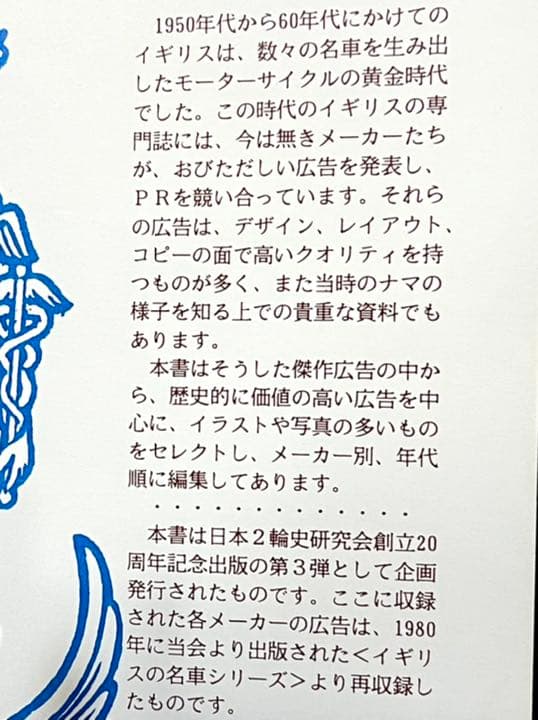 1950年代から60年代にかけての
イギリスは、数々の名車を生み出
したモーターサイクルの黄金時代
でした。この時代のイギリスの専
門誌には、今は無きメーカーたち
が、おびただしい広告を発表し、
PRを競い合っています。それら
の広告は、デザイン、レイアウト、
コピーの面で高いクオリティを持
つものが多く、また当時のナマの
様子を知る上での貴重な資料でも
あります。
本書はそうした傑作広告の中か
ら、歴史的に価値の高い広告を中
心に、イラストや写真の多いもの
をセレクトし、メーカー別、年代
順に編集してあります。
・・・・・・・・・・・・・
本書は日本2輪史研究会創立20
周年記念出版の第3弾として企画
発行されたものです。ここに収録
された各メーカーの広告は、1980
年に当会より出版された<イギリ
スの名車シリーズ>より再収録し
たものです。